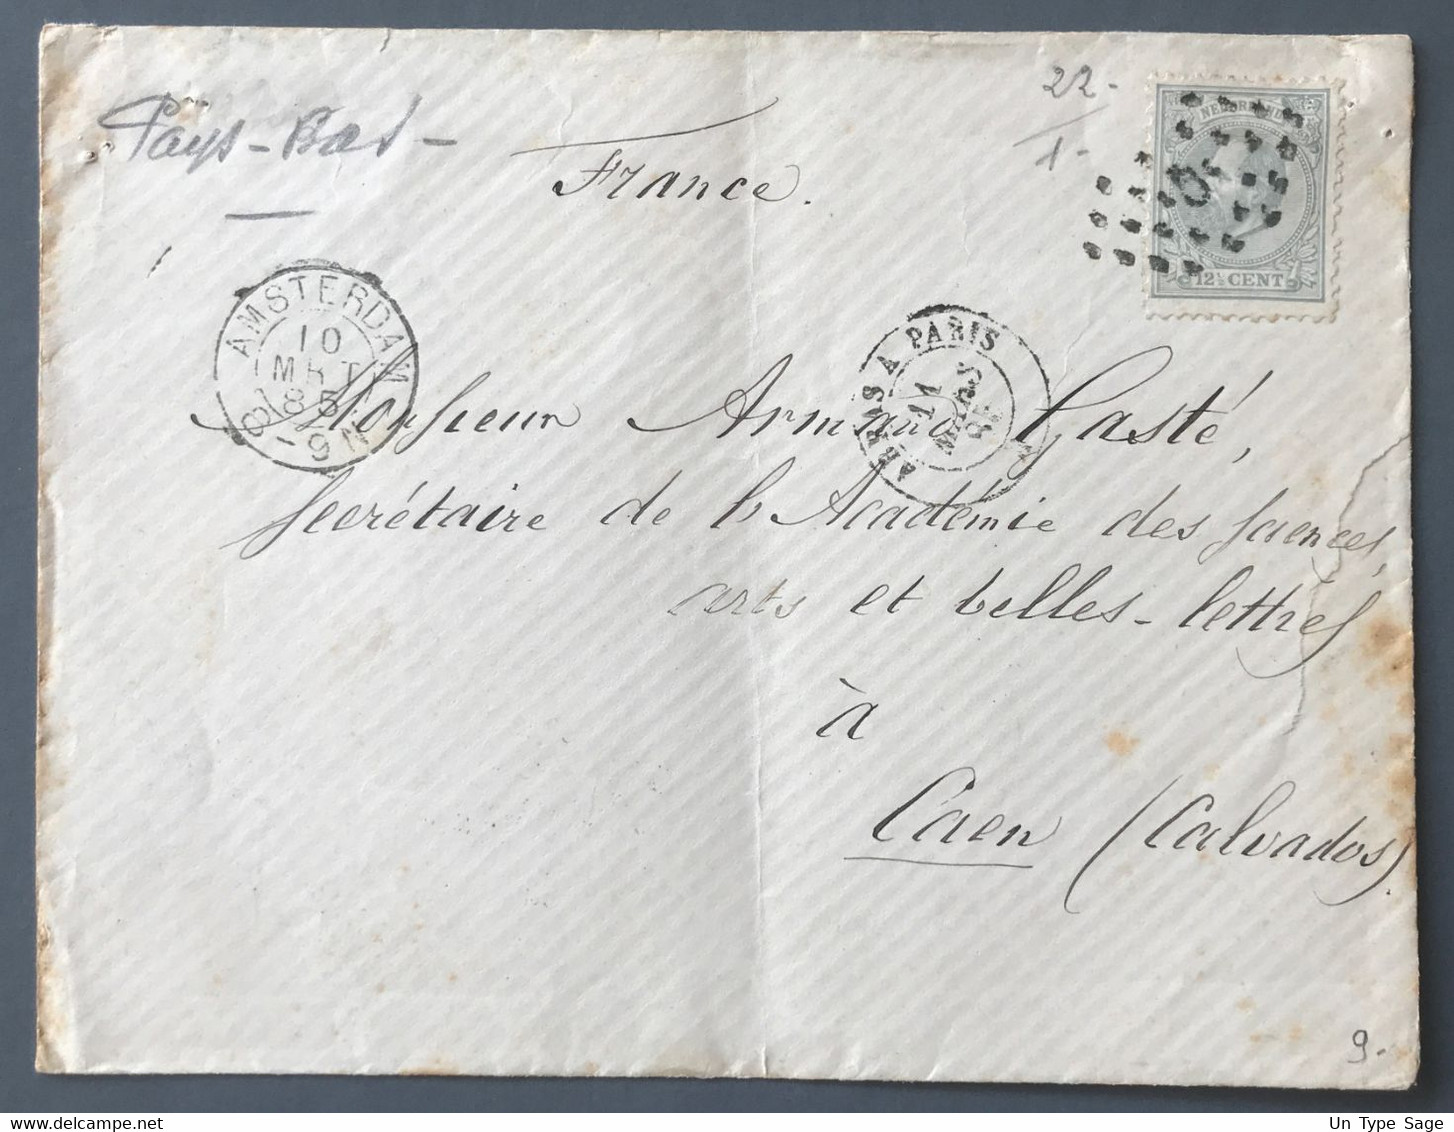 Pays-Bas-
France.
22-
1-
NEDERLAND
12½ CENT
AMSTERDAM
10
MRT
85
8-9N
ARRAS A PARIS
11
MARS
85
Monsieur Armand Gasté,
Secrétaire de l'Académie des Sciences,
arts et belles-lettres
à
Caen (Calvados).
9-
Un Type Sage